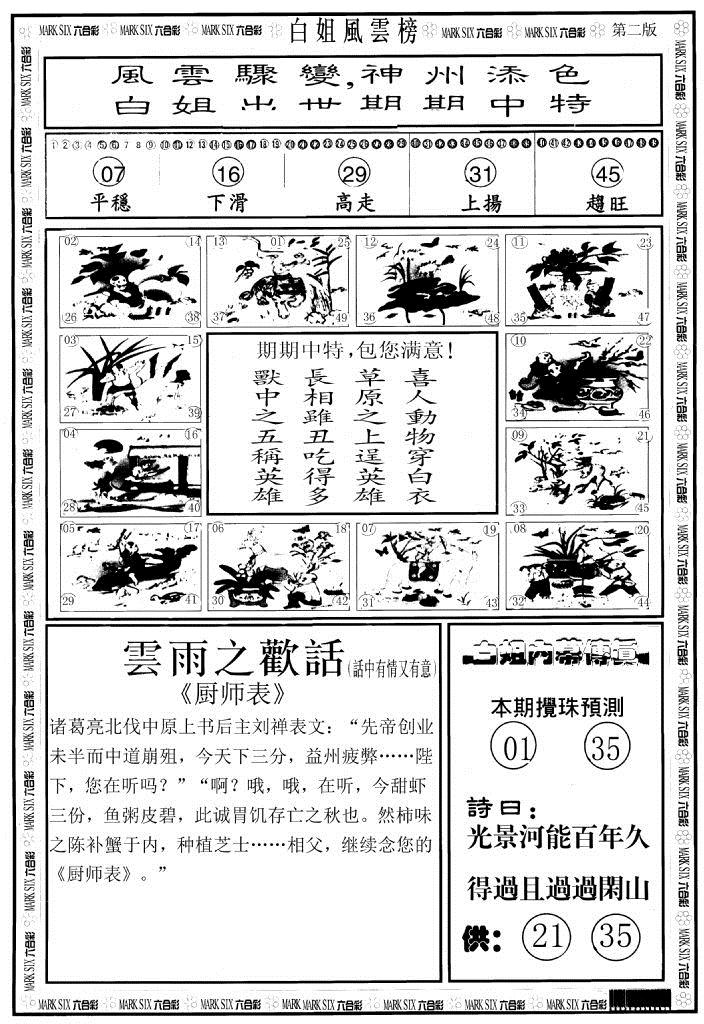 MARK SIX 六合彩 MARK SIX 六合彩 MARK SIX 六合彩 白姐風雲榜 MARK SIX 六合彩 MARK SIX 六合彩 第二版
風雲驟變,神州添色
白姐出世期期中特
07 16 29 31 45
平穩 下滑 高走 上揚 趨旺
02 14 13 01 25 12 24 11 23
26 38 37 49 36 48 35 47
03 15
27 39
04 16
28 40
期期中特,包您满意!
喜人動物穿白衣
草原之上逞英雄
長相雖丑吃得多
獸中之五稱英雄
10 22
34 46
09 21
33 45
05 17 06 18 07 19 08 20
29 41 30 42 31 43 32 44
雲雨之歡話(話中有情又有意)
《厨师表》
诸葛亮北伐中原上书后主刘禅表文：“先帝创业
未半而中道崩殂，今天下三分，益州疲弊……陛
下，您在听吗？”“啊？哦，哦，在听，今甜虾
三份，鱼粥皮碧，此诚胃饥存亡之秋也。然柿味
之陈补蟹于内，种植芝士……相父，继续念您的
《厨师表》。”
白姐内幕傳真
本期攪珠預測
01 35
詩曰：
光景河能百年久
得過且過過閑山
供： 21 35
MARK SIX 六合彩 MARK SIX 六合彩 MARK SIX 六合彩 MARK SIX 六合彩 MARK SIX 六合彩 MARK SIX 六合彩 MARK SIX 六合彩